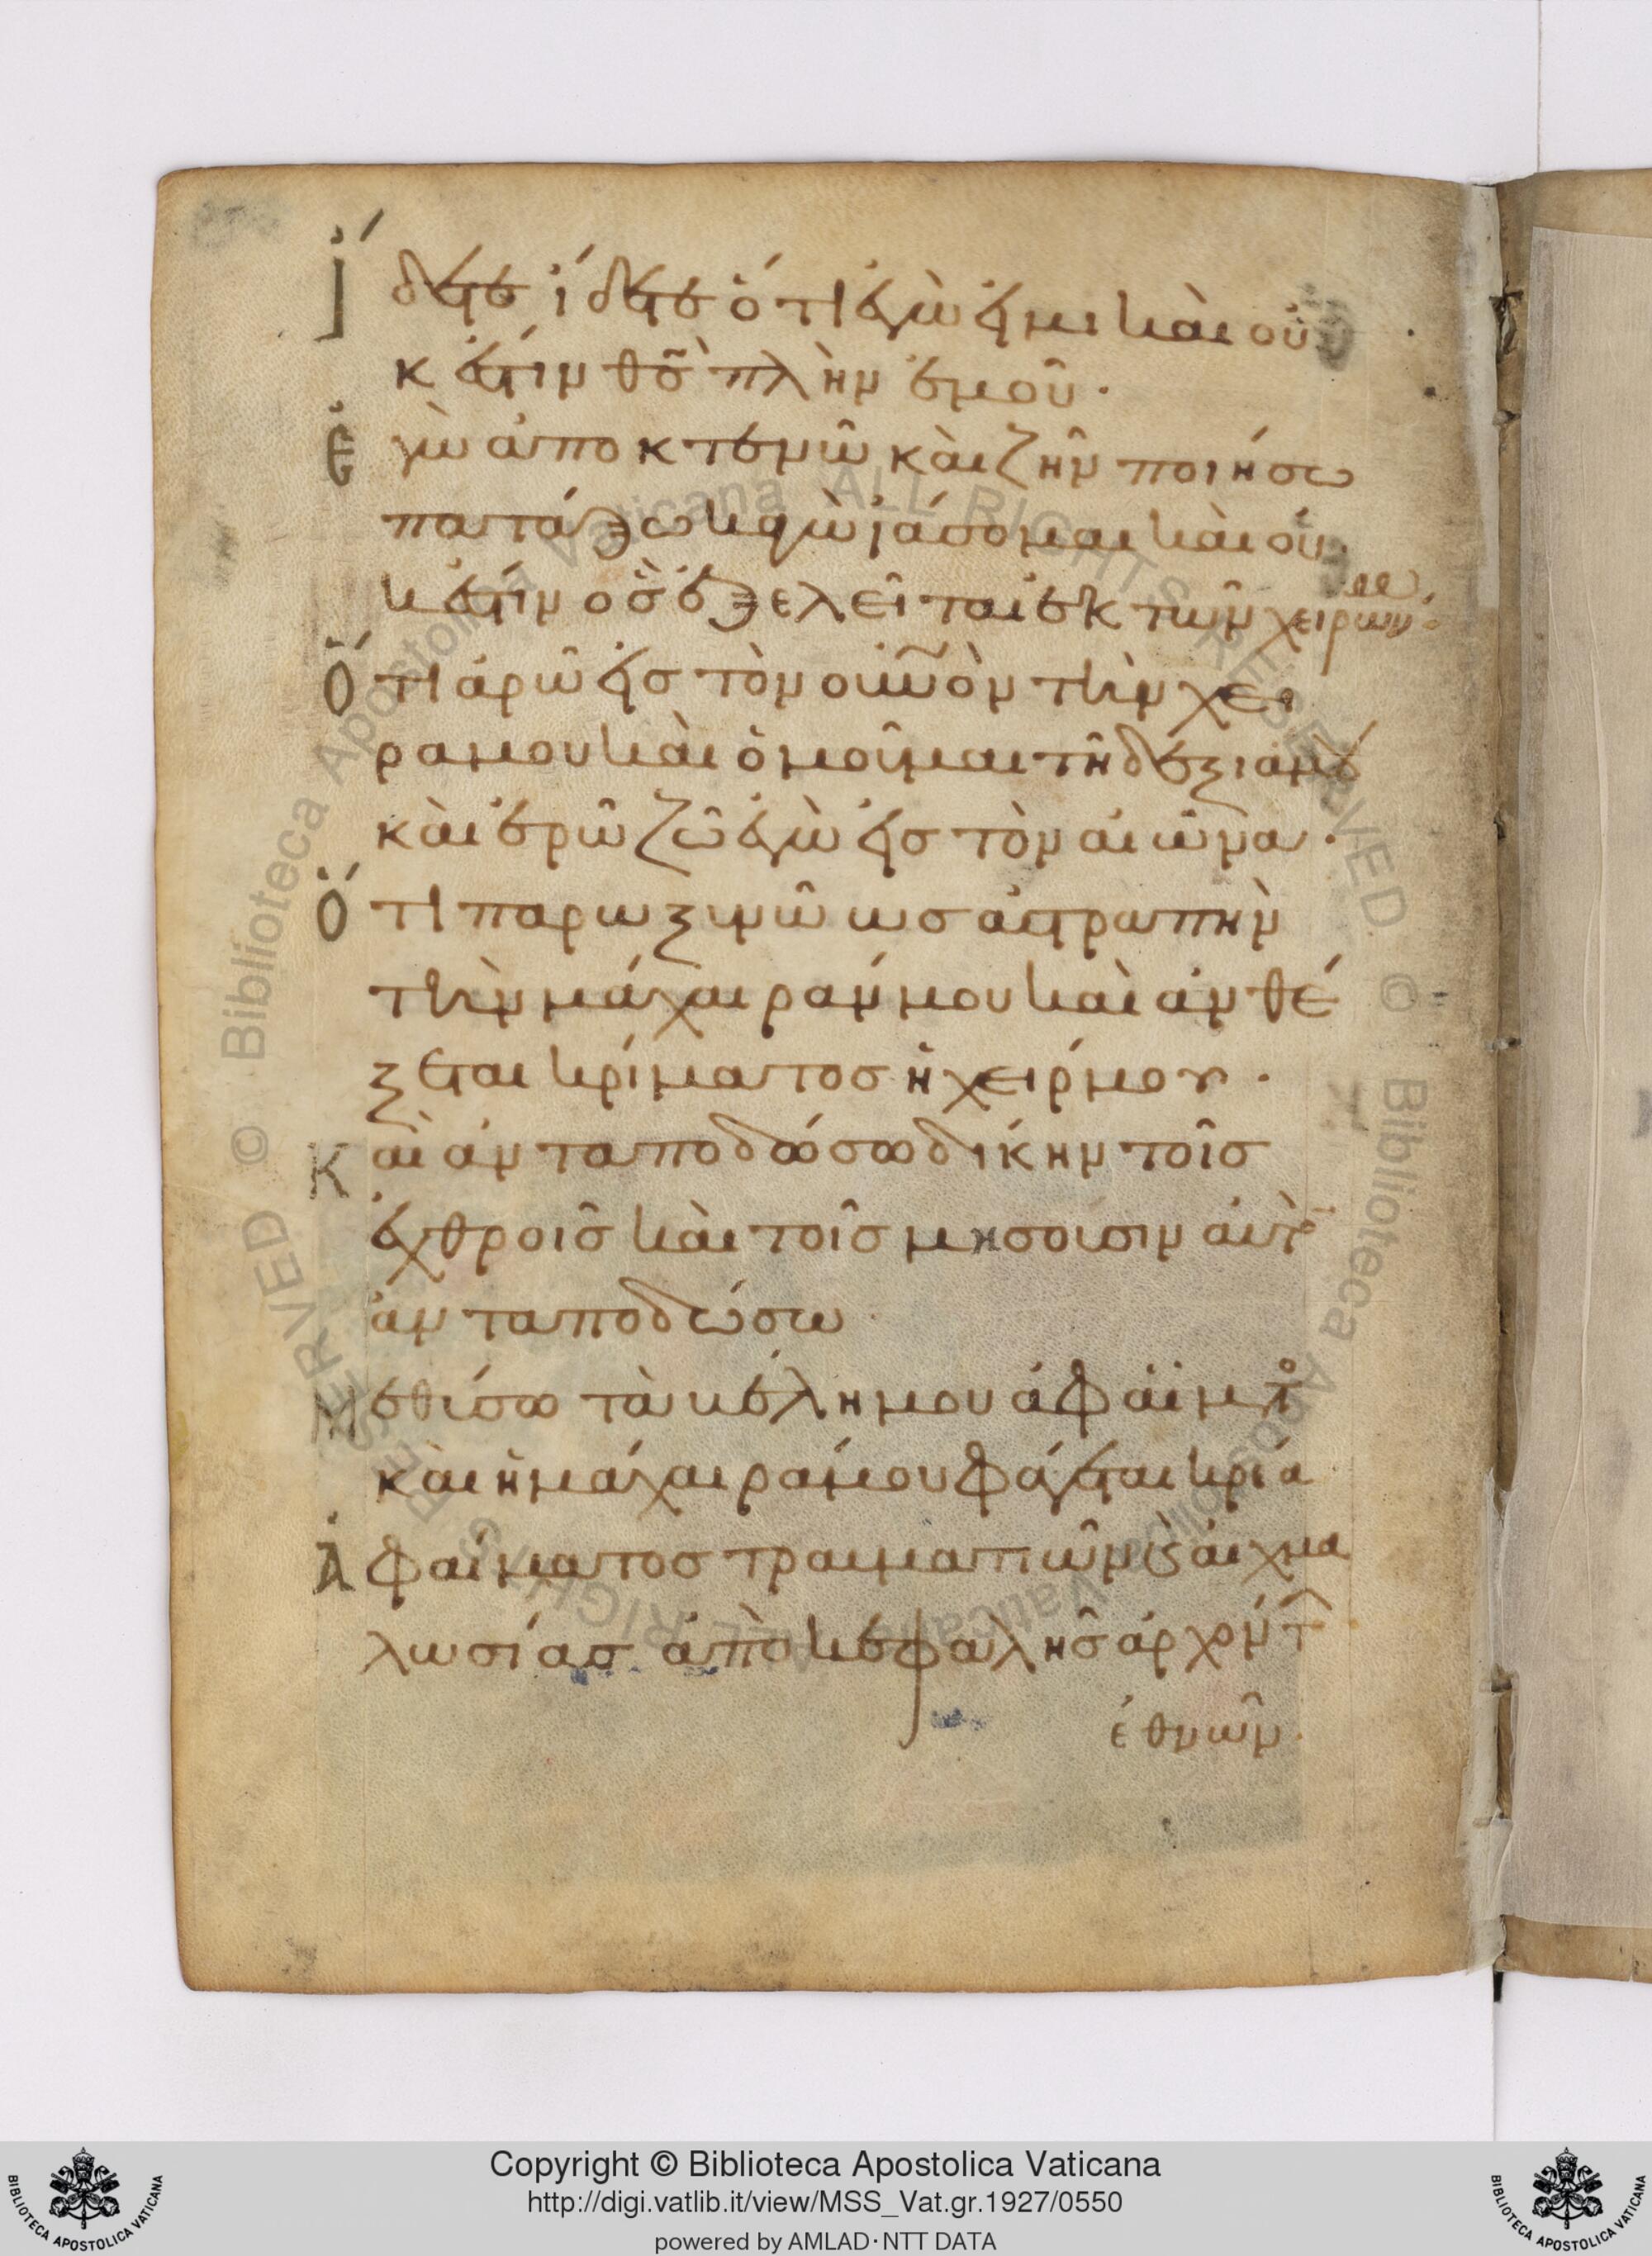 Ἴδετε ἴδετε ὅτι ἐγώ εἰμι καὶ οὐ
κ ἔστιν θσ̃ πλὴν ἐμοῦ·
Ἐγὼ ἀποκτενῶ καὶ ζῆν ποιήσω
πατάξω κἀγὼ ἰάσομαι καὶ οὐ
κ ἔστιν ὃσ ἐξελεῖται ἐκ τῶν χειρων
μου·
Ὅτι ἀρῶ εἰσ τὸν οὐνὸν τὴν χεῖ
ρα μου καὶ ὀμοῦμαι τῆ δεξιᾶ μου
καὶ ἐρῶ ζῶ ἐγὼ εἰσ τὸν αἰῶνα·
Ὅτι παρωξυνῶ ωσ ἀστραπὴν
τὴν μάχαιράν μου καὶ ἀνθέ
ξεται κρίματοσ ἡ χείρ μου·
Καὶ ἀνταποδώσω δίκην τοῖσ
ἐχθροῖσ καὶ τοῖσ μησοῦσιν
ἀνταποδώσω
Μεθύσω τὰ βέλη μου ἀφ αἵματοσ
καὶ ἡ μάχαιρά μου φάγεται κρέα
Ἀφ αἵματοσ τραυματιῶν ϗ αἰχμα
λωσίασ ἀπὸ κεφαλῆσ ἀρχόντων
ἐθνῶν·
Copyright © Biblioteca Apostolica Vaticana
http://digi.vatlib.it/view/MSS_Vat.gr.1927/0550
powered by AMLAD·NTT DATA